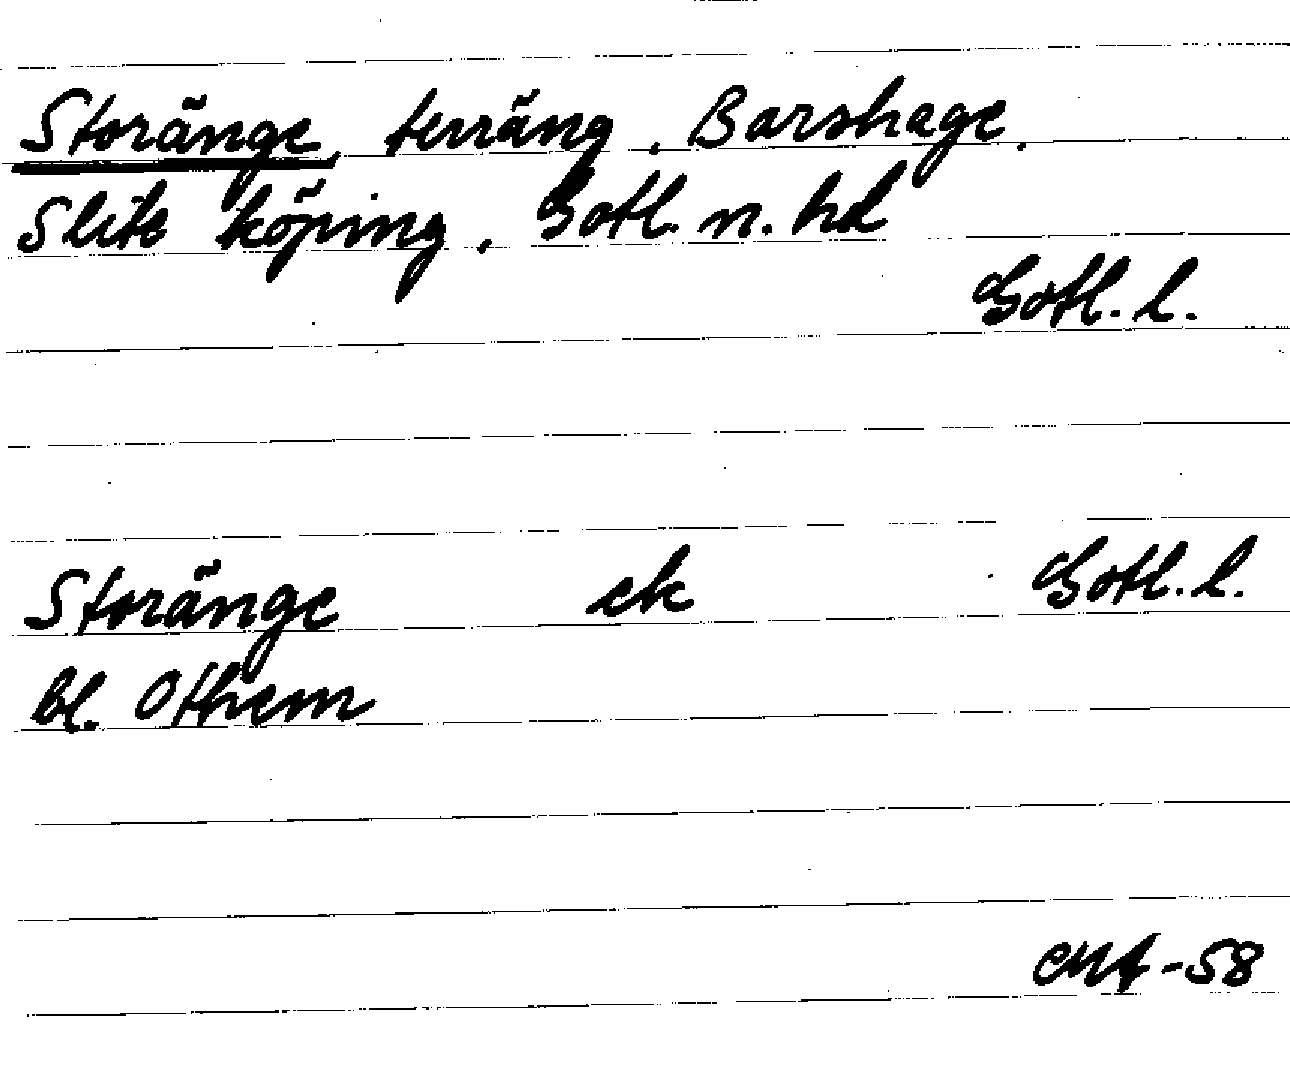 Storänge, terräng, Barshage,
Slite köping, Gotl. n. hd
Gotl. l.
Storänge ek Gotl. l.
bl. Othem
-58